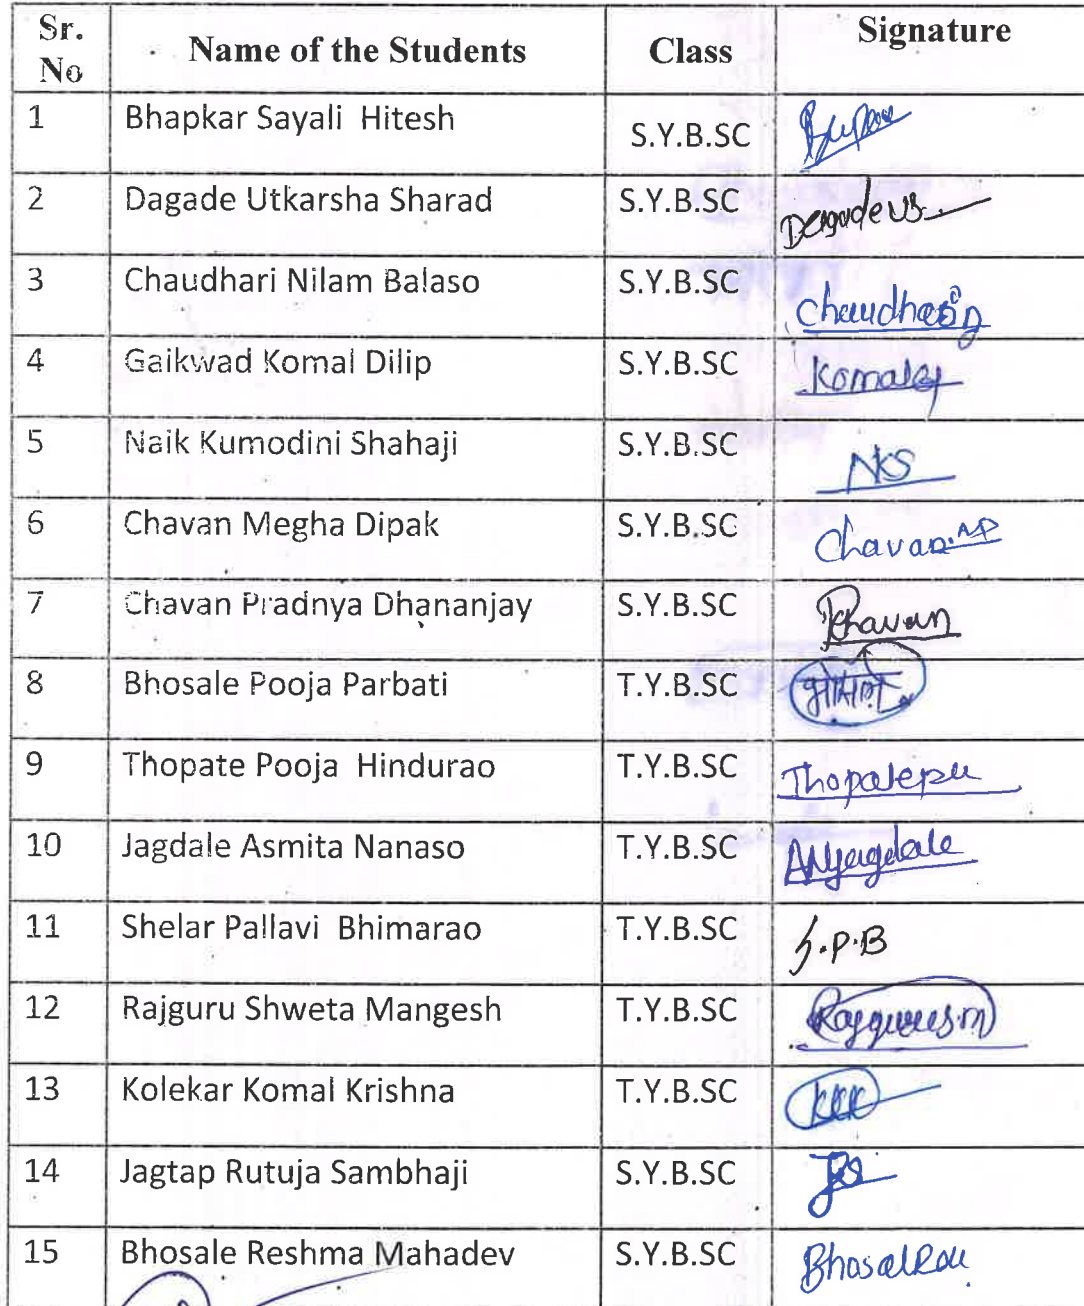 Sr. No Name of the Students Class Signature
1 Bhapkar Sayali Hitesh S.Y.B.SC
2 Dagade Utkarsha Sharad S.Y.B.SC Dagade us.
3 Chaudhari Nilam Balaso S.Y.B.SC
4 Gaikwad Komal Dilip S.Y.B.SC
5 Naik Kumodini Shahaji S.Y.B.SC NKS
6 Chavan Megha Dipak S.Y.B.SC Chavan.MD
7 Chavan Pradnya Dhananjay S.Y.B.SC
8 Bhosale Pooja Parbati T.Y.B.SC भोसले
9 Thopate Pooja Hindurao T.Y.B.SC
10 Jagdale Asmita Nanaso T.Y.B.SC
11 Shelar Pallavi Bhimarao T.Y.B.SC S.P.B
12 Rajguru Shweta Mangesh T.Y.B.SC
13 Kolekar Komal Krishna T.Y.B.SC KKK
14 Jagtap Rutuja Sambhaji S.Y.B.SC
15 Bhosale Reshma Mahadev S.Y.B.SC